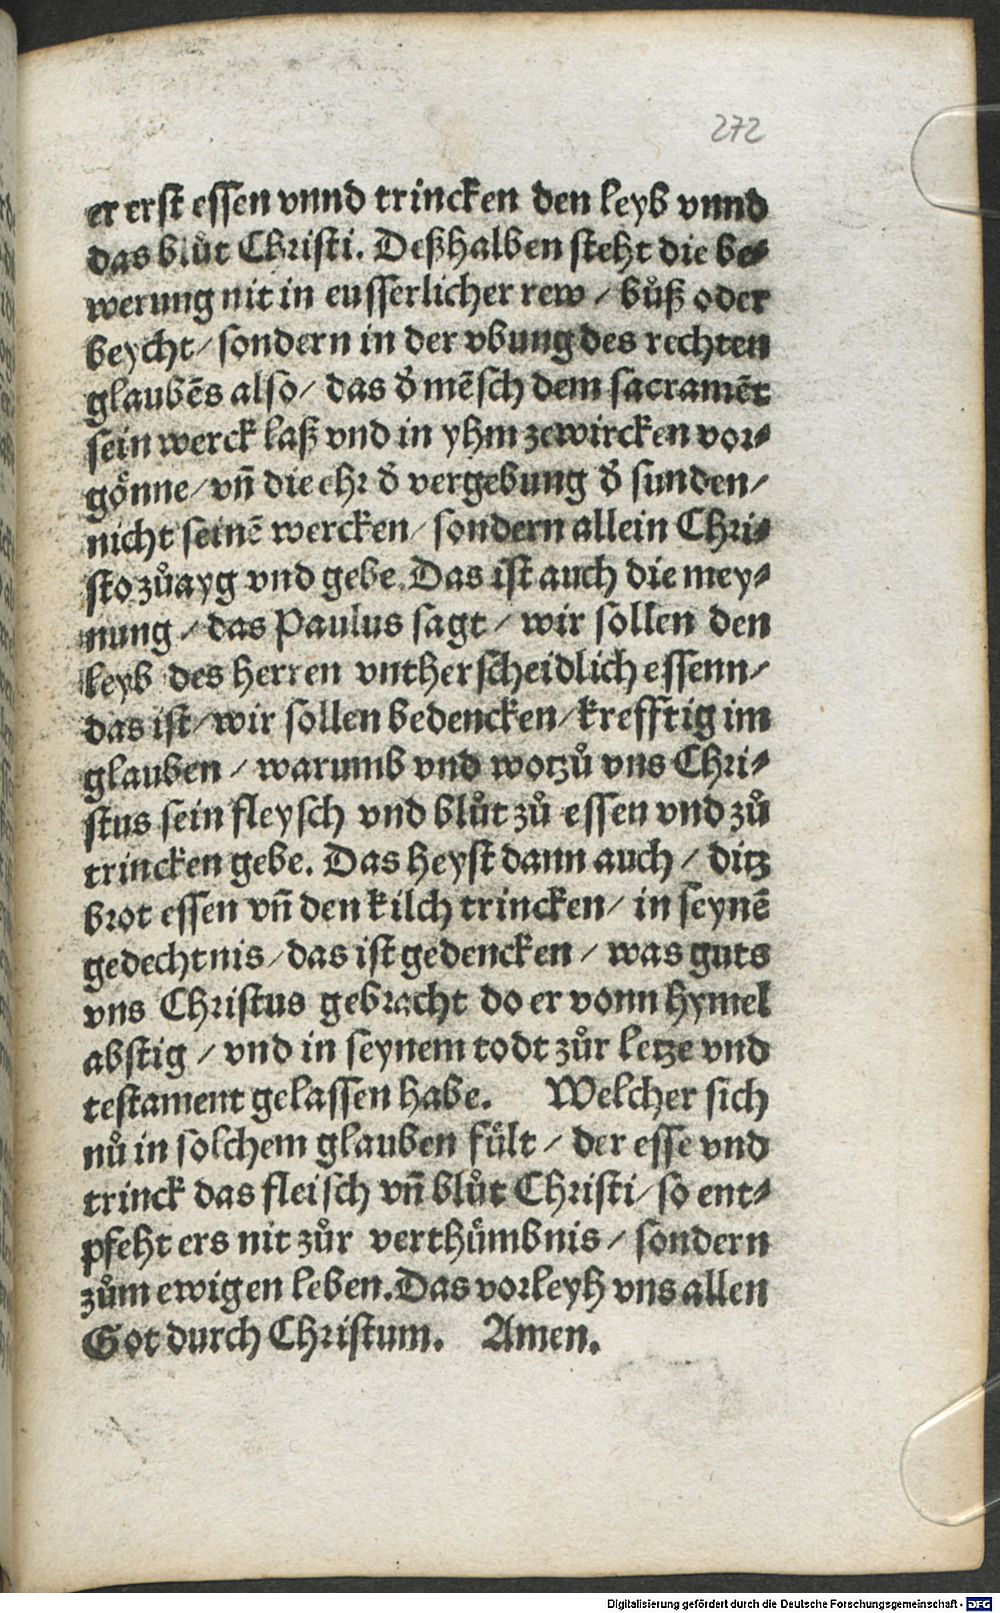 272
er erst essen vnnd trincken den leyb vnnd
das blůt Christi. Deßhalben steht die be⸗
werung nit in eusserlicher rew / bůß oder
beycht / sondern in der vbung des rechten
glaubēs also / das d̓ mēsch dem sacramēt
sein werck laß vnd in yhm zewircken vor⸗
gönne / vn̄ die ehr d̓ vergebung d̓ sunden /
nicht seinē wercken / sondern allein Chri⸗
sto zůayg vnd gebe. Das ist auch die mey⸗
nung / das Paulus sagt / wir sollen den
leyb des herren vntherscheidlich essenn /
das ist / wir sollen bedencken / krefftig im
glauben / warumb vnd wotzů vns Chri⸗
stus sein fleysch vnd blůt zů essen vnd zů
trincken gebe. Das heyst dann auch / ditz
brot essen vn̄ den kilch trincken / in seynē
gedechtnis / das ist gedencken / was guts
vns Christus gebracht do er vonn hymel
abstig / vnd in seynem todt zůr letze vnd
testament gelassen habe. Welcher sich
nů in solchem glauben fült / der esse vnd
trinck das fleisch vn̄ blůt Christi / so ent⸗
pfeht ers nit zůr verthümbnis / sondern
zům ewigen leben. Das vorleyh vns allen
Got durch Christum. Amen.
Digitalisierung gefördert durch die Deutsche Forschungsgemeinschaft - DFG